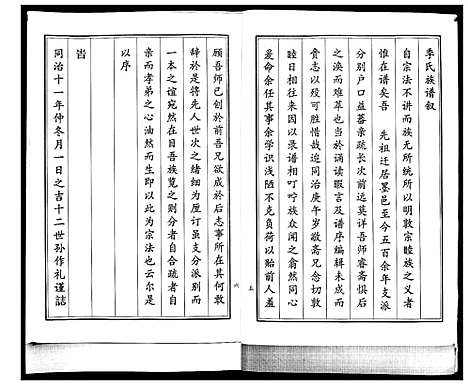 季氏族譜叙
自宗法不講而族無所統所以明敦宗睦族之義者
惟在譜矣吾　先祖迁居墨邑至今五百余年支派
分别户口益蕃亲疏长次前后莫详吾师睿斋惧后
之涣而难萃也当於诵读暇言及谱序编辑未成而
赍志以殁可胜惜哉迨同治庚午岁敬斋兄慨切敦
睦日相往来以录谱相叮咛族众闻之翕然同心
爱命余任其事余学识浅陋不克负荷以贻前人羞
顾吾师已创於前吾兄欲成於后志事所在其何敢
辞於是将先人世次之绪细为厘订虽支分派别而
一本之谊宛然在目吾族览之则分者自合疏者自
亲而孝弟之心油然而生即以此为宗法也云尔是
以序
旹
同治十一年仲冬月一日之吉十二世孙作礼谨誌
五
六